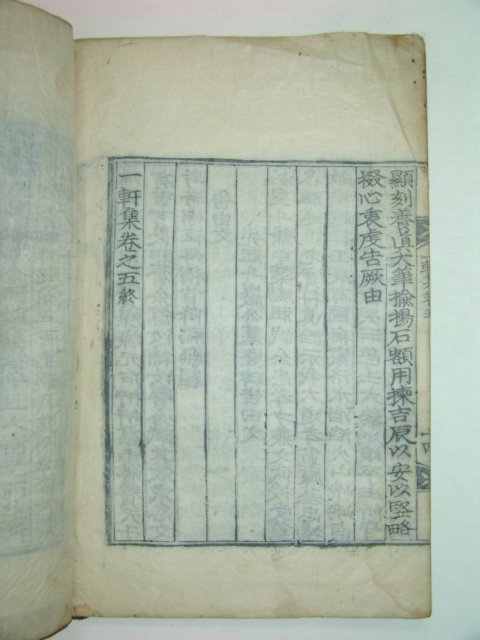 顯刻養眞大筆揄揚石額用揀吉辰以安以竪略
掇心衷虔告厥由
一軒集卷之五終